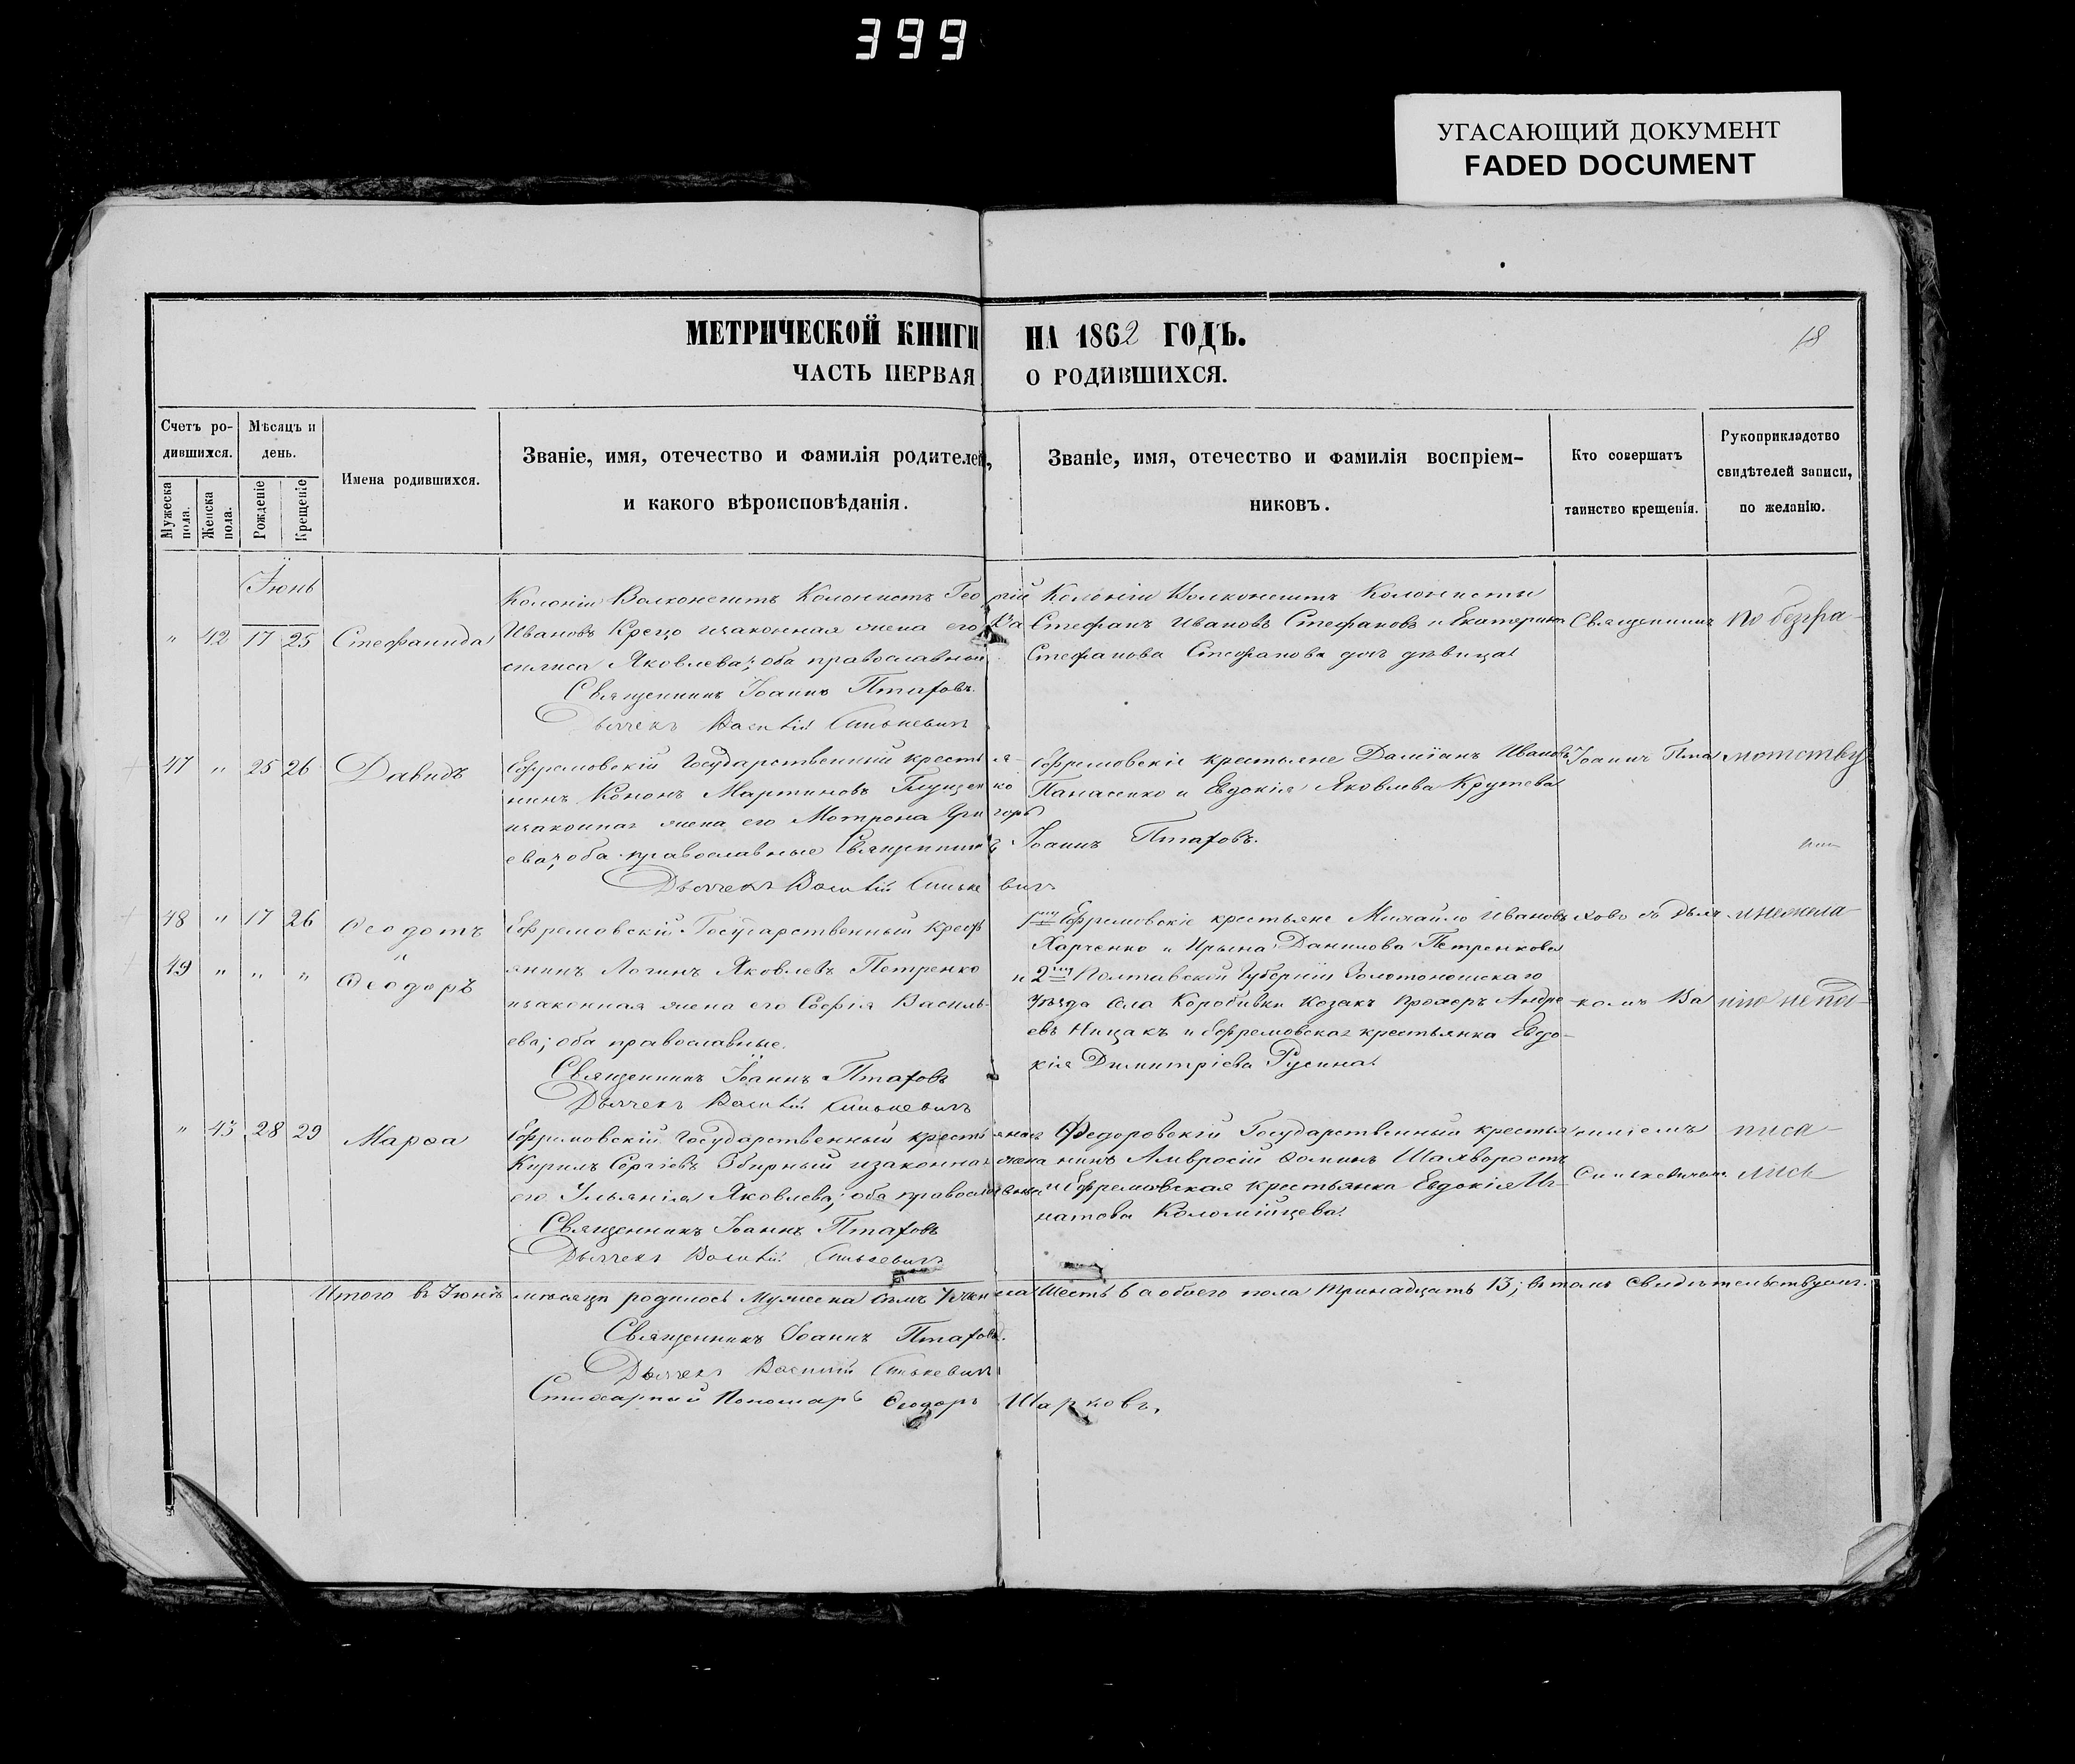 399
УГАСАЮЩИЙ ДОКУМЕНТ
FADED DOCUMENT
МЕТРИЧЕСКОЙ КНИГИ НА 1862 ГОДЪ.
18
ЧАСТЬ ПЕРВАЯ О РОДИВШИХСЯ.
Счетъ ро-
дившихся.
Мужеска пола.
Женска пола.
Мѣсяцъ и
день.
Рожденіе
Крещеніе
Имена родившихся.
Званіе, имя, отечество и фамилія родителей,
и какого вѣроисповѣданія.
Званіе, имя, отечество и фамилія воспріем-
никовъ.
Кто совершатъ
таинство крещенія.
Рукоприкладство
свидѣтелей записи,
по желанію.
Іюнь
" 42 17 25 Стефанида
Колоніи Валконештъ Колонистъ Георгій
Ивановъ Крецо изаконная жена его Ва
силиса Яковлева; оба православные
Священникъ Іоаннъ Птаховъ.
Дьячекъ Василій Синькевичъ
Колоніи Волконештъ Колонисты
Стефанъ Ивановъ Стефановъ и Екатерина
Стефанова Стефанова дочъ дѣвица
Священникъ
по безгра-
47 " 25 26 Давидъ
Ефремовскій Государственный крестья-
нинъ Кононъ Мартиновъ Глущенко
изаконная жена его Мотрона Григорь
ева; оба православные Священникъ Іоаннъ Птаховъ.
Дьячекъ Василій Синькевичъ
Ефремовскіе крестьяне Даміанъ Ивановъ
Панасенко и Евдокія Яковлева Крутева
Іоаннъ Пта
мотству
48 " 17 26 Ѳеодотъ
49 " " " Ѳеодоръ
Ефремовскій Государственный крест
янинъ Логинъ Яковлевъ Петренко
изаконная жена его Софія Василь-
ева; оба православные.
Священникъ Іоаннъ Птаховъ
Дьячекъ Василій Синькевичъ
1го Ефремовскіе крестьяне Михайло Ивановъ
Харченко и Ирына Данилова Петренкова
и 2го Полтавской Губерніи Золотоношскаго
Уѣзда Села Коробивки Козакъ Прохоръ Андре
евъ Ницакъ и Ефремовская крестьянка Евдо-
кія Димитріева Русина
ховъ съ Дьяч
-комъ Ва
инежела-
нію не под-
" 43 28 29 Марѳа
Ефремовскій Государственный крестьянинъ
Кирилъ Сергіевъ Збирный изаконная жена
его Ульянія Яковлева; оба православные
Священникъ Іоаннъ Птаховъ
Дьячекъ Василій Синькевичъ
Федоровскій Государственный крестья
нинъ Амвросій Ѳоминъ Шахворостъ
и Ефремовская крестьянка Евдокія Иг-
натова Коломійцева
силіемъ
Синькевичемъ
писа-
лись
Итого въ Іюнѣ мѣсяцѣ родилось Мужеска Семъ 7 Женска Шесть 6 а обоего пола тринадцать 13; въ томъ Свидѣтельствуемъ.
Священникъ Іоаннъ Птаховъ.
Дьячекъ Василій Синькевичъ
Стихарный Пономарь Ѳеодоръ Шарковъ.